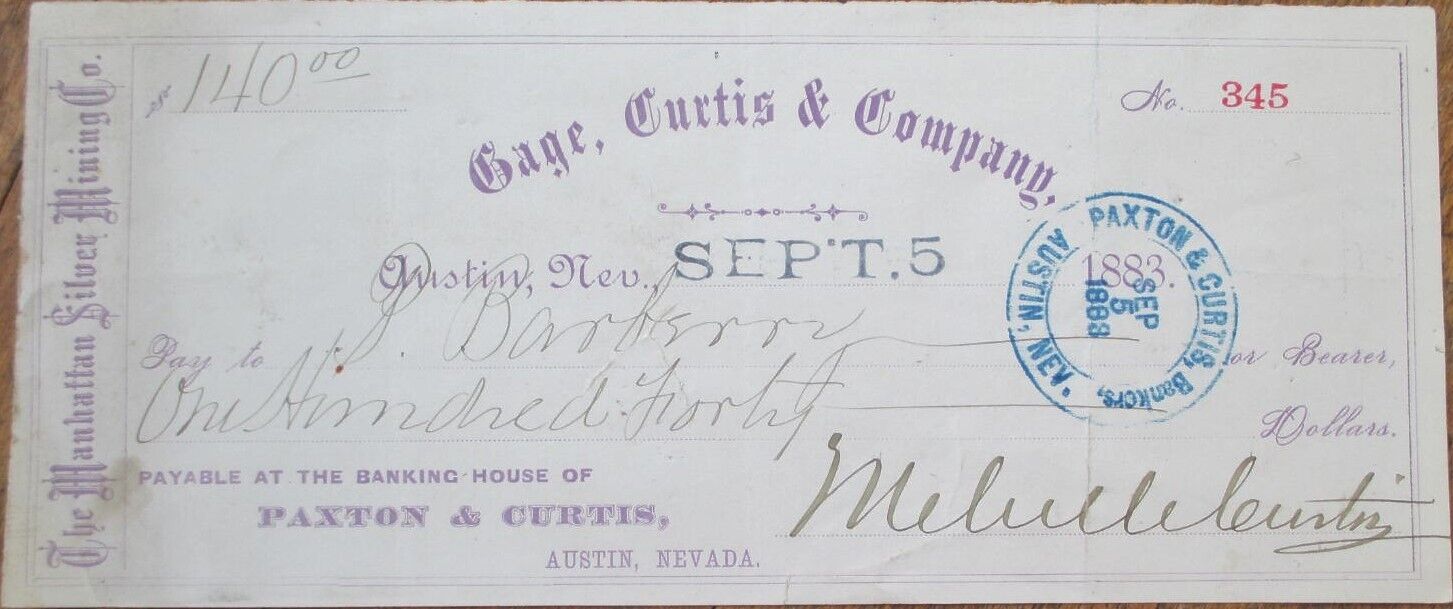 The Manhattan Silver Mining Co.
$ 140 00
No. 345
Gage, Curtis & Company,
Austin, Nev., SEPT. 5 1883.
Pay to or Bearer,
One Hundred Forty Dollars.
PAYABLE AT THE BANKING HOUSE OF
PAXTON & CURTIS,
AUSTIN, NEVADA.
Melville Curtis
PAXTON & CURTIS, Bankers,
AUSTIN, NEV.
SEP
5
1883